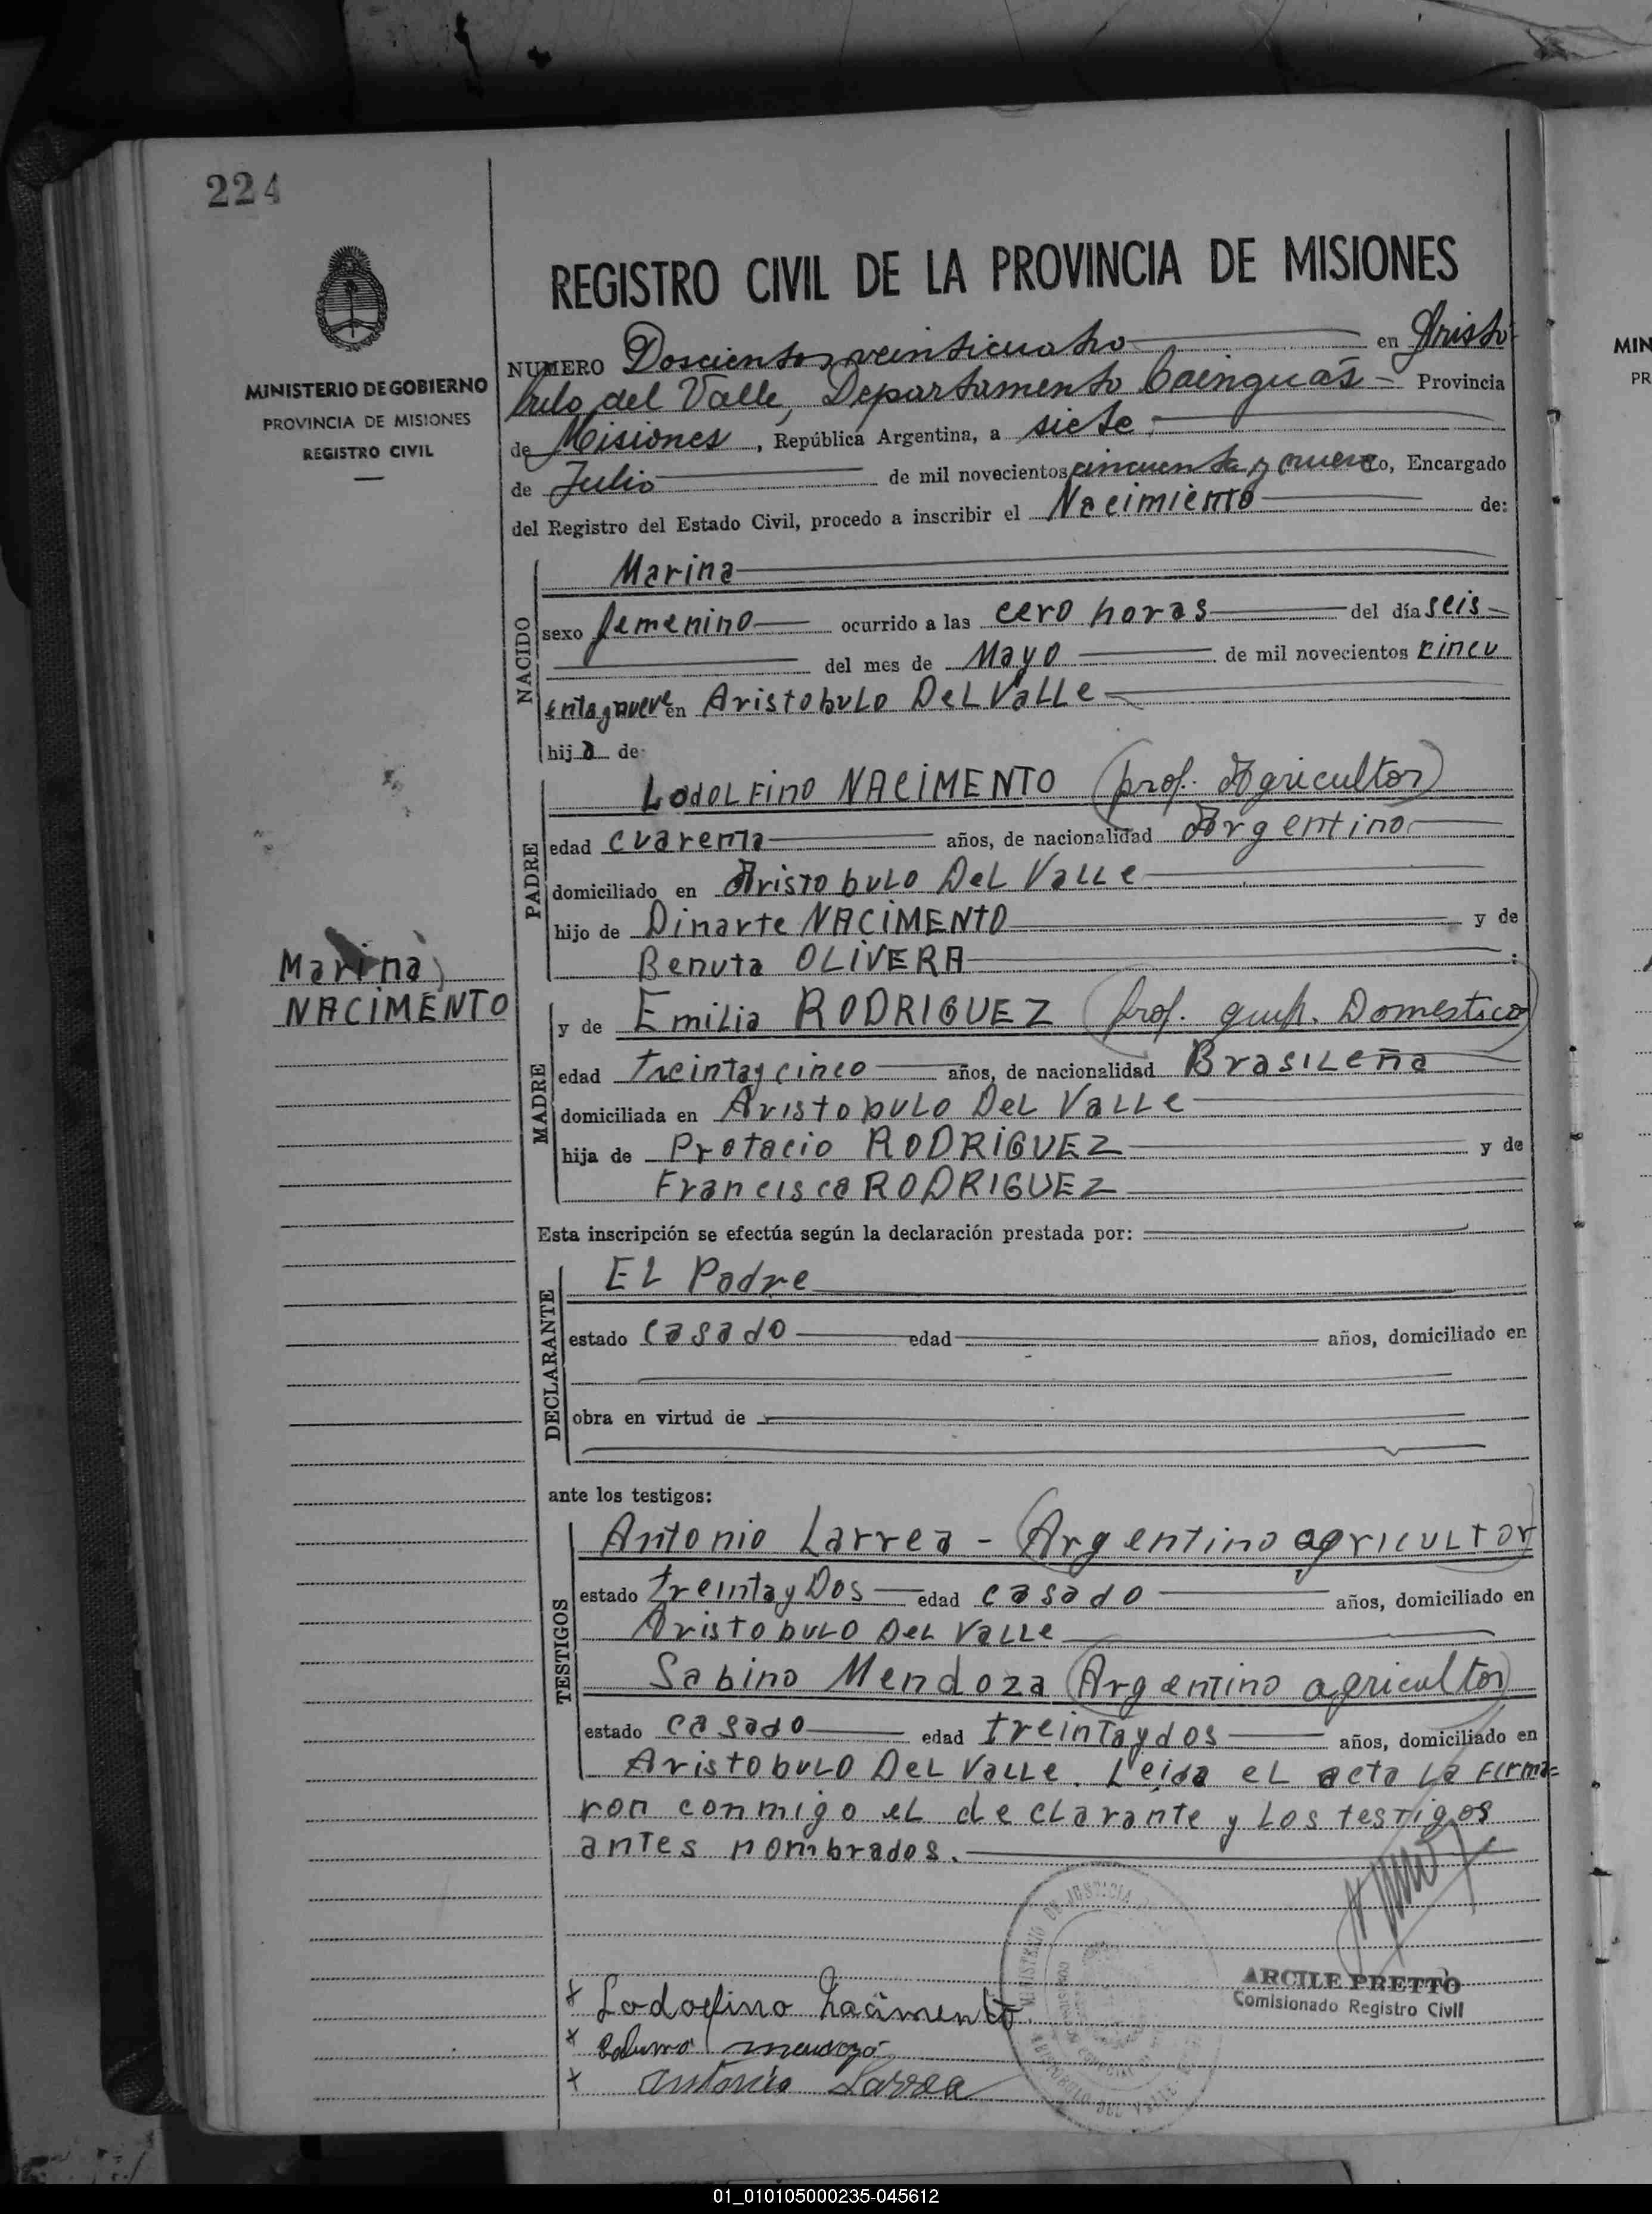 224
MINISTERIO DE GOBIERNO
PROVINCIA DE MISIONES
REGISTRO CIVIL
REGISTRO CIVIL DE LA PROVINCIA DE MISIONES
NUMERO Doscientos veinticuatro en Aristó
bulo del Valle, Departamento Cainguás - Provincia
de Misiones, República Argentina, a siete
de Julio de mil novecientos cincuenta y nueve yo, Encargado
del Registro del Estado Civil, procedo a inscribir el Nacimiento de:
NACIDO
Marina
sexo femenino ocurrido a las cero horas del día seis
del mes de Mayo de mil novecientos cincu
entaynueve en Aristobulo Del Valle
hija de
PADRE
Lodolfino NACIMENTO (prof. Agricultor)
edad cuarenta años, de nacionalidad Argentino
domiciliado en Aristobulo Del Valle
hijo de Dinarte NACIMENTO y de
Benuta OLIVERA
Marina
NACIMENTO
MADRE
y de Emilia RODRIGUEZ (prof. Domestico)
edad treintaycinco años, de nacionalidad Brasileña
domiciliada en Aristobulo Del Valle
hija de Protacio RODRIGUEZ y de
Francisca RODRIGUEZ
Esta inscripción se efectúa según la declaración prestada por:
DECLARANTE
El Padre
estado casado edad años, domiciliado en
obra en virtud de
ante los testigos:
TESTIGOS
Antonio Larrea - (Argentino agricultor)
estado treintaydos edad casado años, domiciliado en
Aristobulo Del Valle
Sabino Mendoza (Argentino agricultor)
estado casado edad treintaydos años, domiciliado en
Aristobulo Del Valle. Leida el acta la firma=
ron conmigo el declarante y los testigos
antes nombrados.
MINISTERIO DE JUSTICIA
ARISTOBULO DEL VALLE
ARCILE PRETTO
Comisionado Registro Civil
x Lodolfino Nacimento
x Sabino mendoza
x Antonio Larrea
MIN
PR
01_010105000235-045612